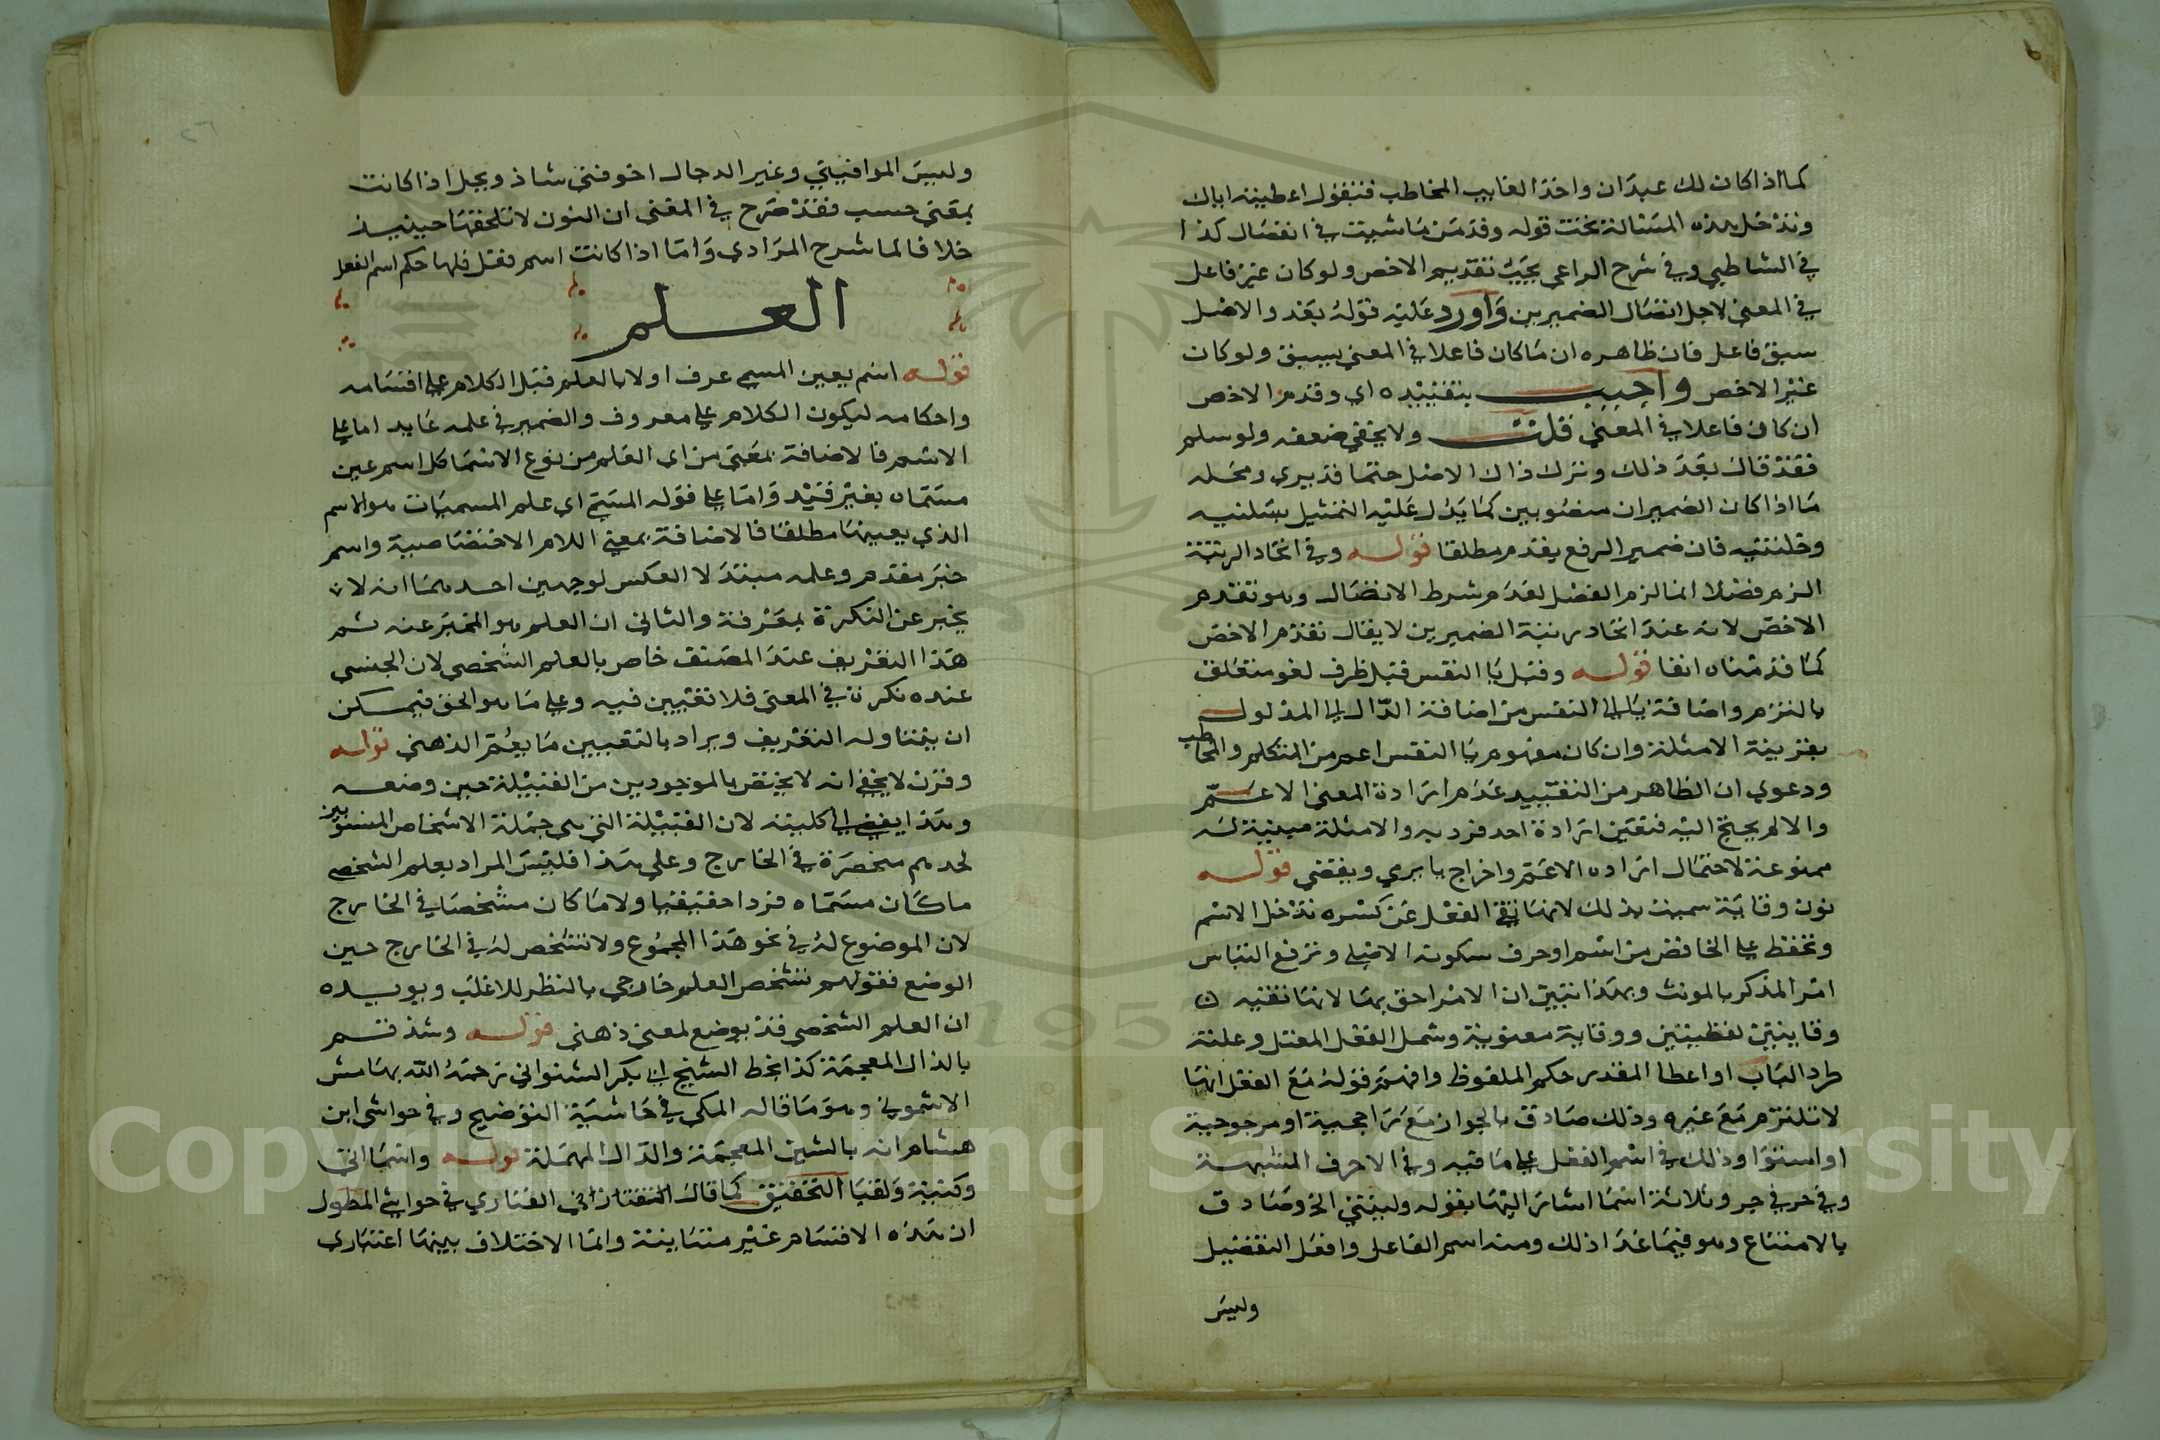 كما اذا كان لك عبدان واخذ الغايب المخاطب فتقول اعطيته اياك
وتدخل هذه المسئالة تحت قوله وقدمن ما شيت في انفصال كذا
في الشاطبي وفي شرح الراعي يجب تقديم الاخص ولو كان غير فاعل
في المعنى لاجل اتصال الضميرين واورد عليه قوله بعد والاصل
سبق فاعل فان ظاهره ان ما كان فاعلا في المعنى يسبق ولو كان
غير الاخص واجيب بتقييده اي وقدم الاخص
ان كان فاعلا في المعنى قلت ولا يخفي ضعفه ولو سلم
فقد قال بعد ذلك وترك ذاك الاصل حتما قد يري ومحله
ما اذا كان الضميران منصوبين كما يدل عليه التمثيل بسلنيه
وخلتنيه فان ضمير الرفع يقدم مطلقا قوله وفي اتحاد الرتبة
الزم فصلا انما لزم الفصل لعدم شرط الاتصال وهو تقدم
الاخص لانه عند اتحاد رتبة الضميرين لا يقال تقدم الاخص
كما قدمناه انفا قوله وقبل يا النفس قبل ظرف لغو متعلق
بالتزم واضافة يا الى النفس من اضافة الدال الى المدلول
بقرينة الامثلة وان كان مفهوم يا النفس اعم من المتكلم والمخاطب
ودعوي ان الظاهر من التقييد عدم ارادة المعنى الاعم
والا لم يحتج اليه فتعين ارادة احد فرديه والامثلة مبينة له
ممنوعة لاحتمال اراده الاعم واخراج يا يري ويقتضي قوله
نون وقاية سميت بذلك لانها تقي الفعل عن كسره تدخل الاسم
وتحفظ على الخافض من اسم او حرف سكونه الاصلي وترفع التباس
امر المذكر بالمونث وبهذا تبين ان الامر احق بها لانها تقيه ن
وقايتين لفظيتين ووقاية معنوية وشمل الفعل المعتل وعلته
طرد الباب او اعطا المقدر حكم الملفوظ وافهم قوله مع الفعل انها
لا تلتزم مع غيره وذلك صادق بالجواز مع راجحية او مرجوحية
او استوا وذلك في اسم الفعل على ما فيه وفي الاحرف المشبهة
وفي حرفي جر وثلاثة اسما اشار اليها بقوله وليتني الخ وصادق
بالامتناع وهو فيما عدا ذلك ومنه اسم الفاعل وافعل التفضيل
وليس
وليس الموافيني وغير الدجال اخوفني شاذ وبجل اذا كانت
بمعنى حسب فقد صرح في المغنى ان النون لا تلحقها حينيذ
خلافا لما شرح المرادي واما اذا كانت اسم فعل فلها حكم اسم الفعل
العلم
قوله اسم يعين المسمى عرف اولا بالعلم قبل الكلام على اقسامه
واحكامه ليكون الكلام على معروف والضمير في علمه عايد اما على
الاسم فالاضافة بمعنى من اي العلم من نوع الاسما كل اسم عين
مسماه بغير قيد واما على قوله المسمى اي علم المسميات هو الاسم
الذي يعينها مطلقا فالاضافة بمعنى اللام الاختصاصية واسم
خبر مقدم وعلمه مبتدا لا العكس لوجهين احدهما انه لا
يخبر عن النكرة بمعرفة والثاني ان العلم هو المخبر عنه ثم
هذا التعريف عند المصنف خاص بالعلم الشخصي لان الجنسي
عنده نكرة في المعنى فلا تعيين فيه وعلى ما هو الحق فيمكن
ان يتناوله التعريف ويراد بالتعيين ما يعم الذهني قوله
وقرن لا يخفي انه لا يختص بالموجودين من القبيلة حين وضعه
وهذا يفضي الى كليته لان القبيلة التي هي جملة الاشخاص المنسوبين
لحدهم منحصرة في الخارج وعلى هذا فليس المراد بعلم الشخص
ما كان مسماه فردا حقيقيا ولا ما كان مشخصا في الخارج
لان الموضوع له في نحو هذا المجموع ولا تشخص له في الخارج حين
الوضع فقولهم تشخص العلم خارجي بالنظر للاغلب ويويده
ان العلم الشخصي قد يوضع لمعنى ذهني قوله وشذقم
بالذال المعجمة كذا بخط الشيخ ابي بكر الشنواني رحمه الله بهامش
الاشموني وهو ما قاله المكي في حاشية التوضيح وفي حواشي ابن
هشام انه بالشين المعجمة والدال المهملة قوله واسما اتى
وكنية ولقبا التحقيق كما قال التفتازاني الفناري في حواشي المطول
ان هذه الاقسام غير متباينة وانما الاختلاف بينها اعتباري
Copyright © King Saud University
1957